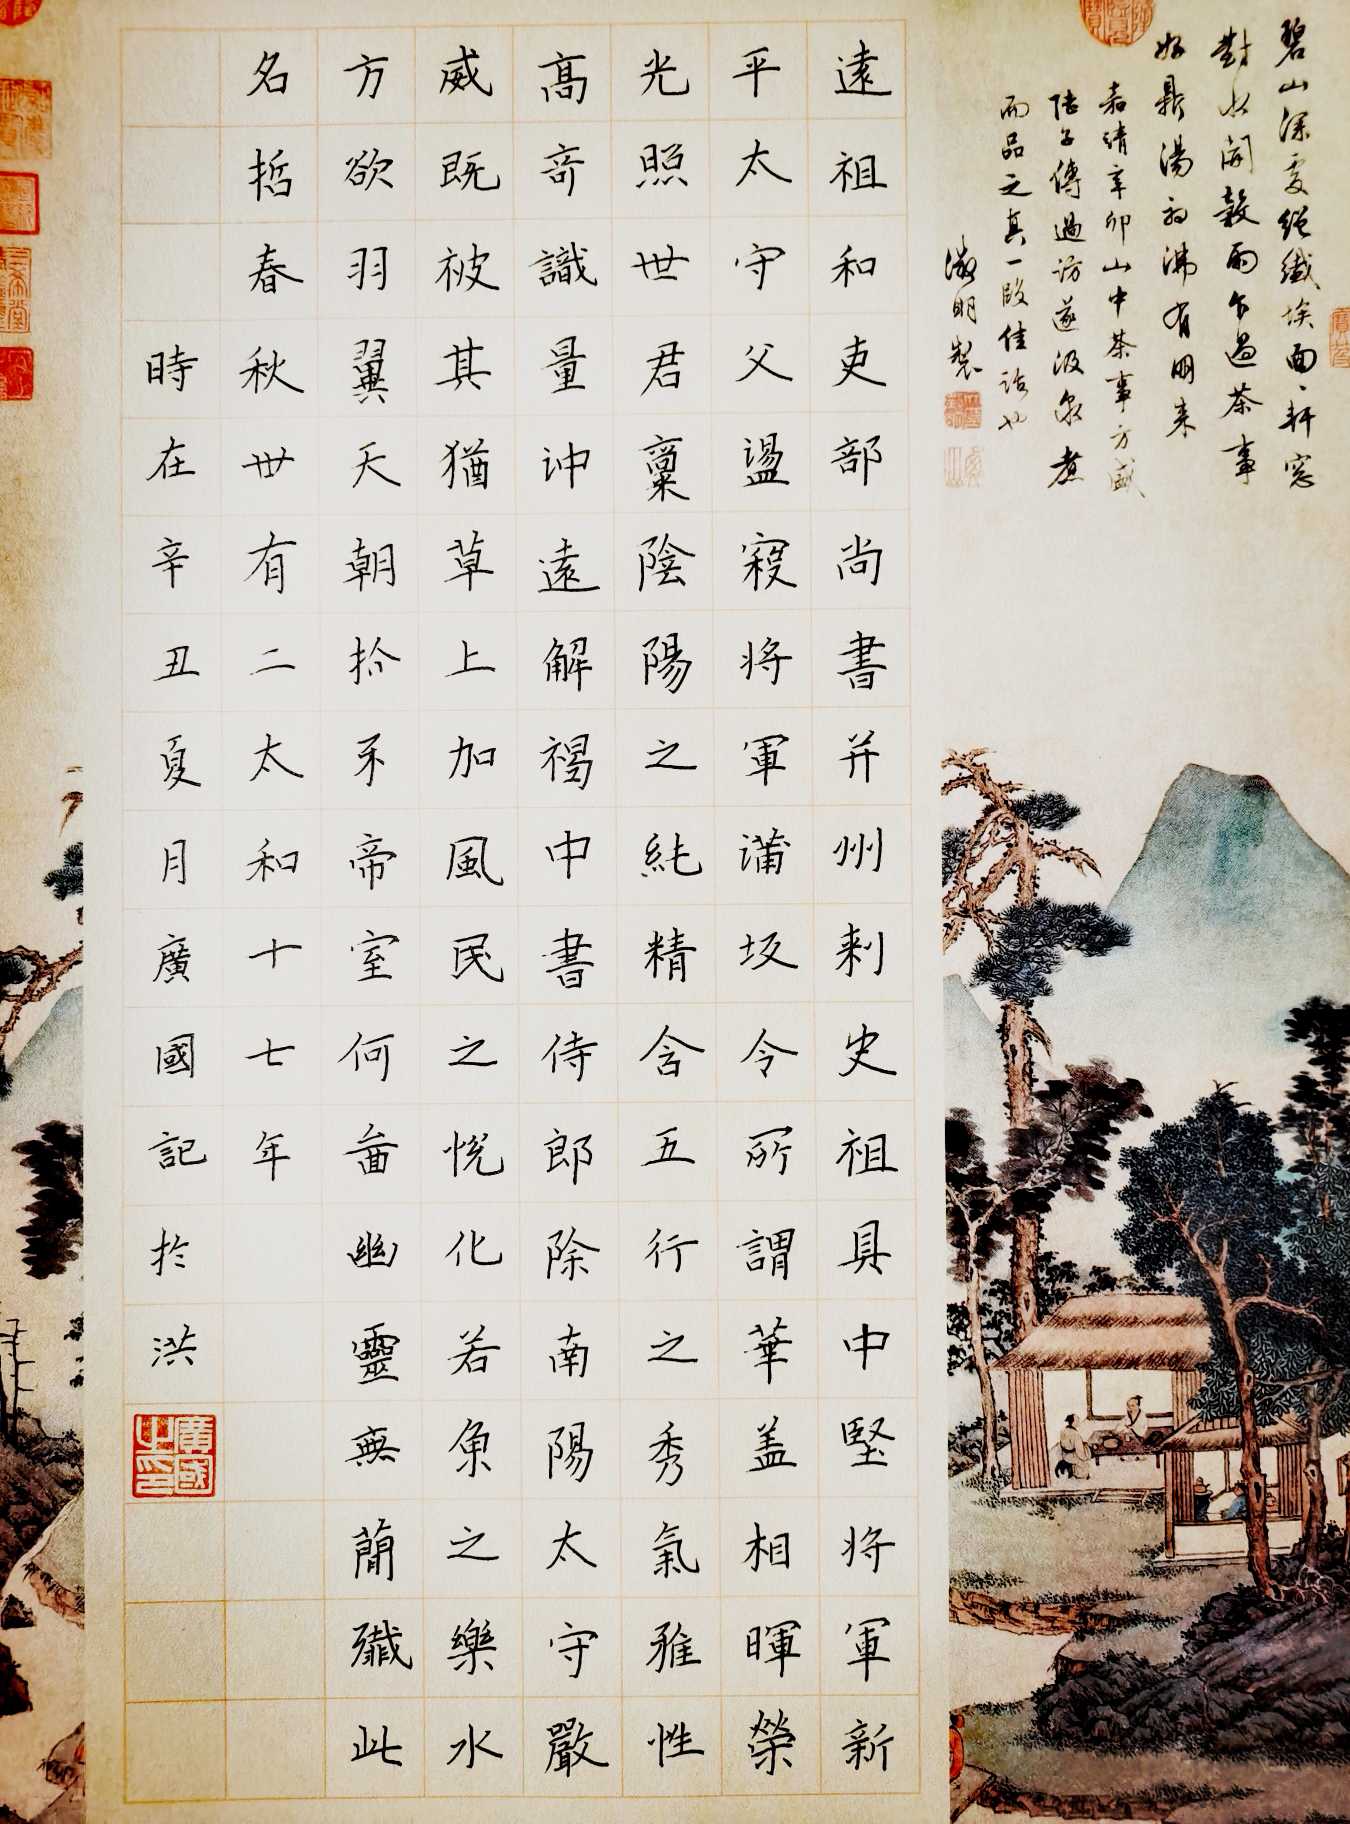 碧山深處絕纖埃面面軒窗
對水開穀雨乍過茶事
好鼎湯初沸有朋來
嘉靖辛卯山中茶事方盛
陸子傅過訪遂汲泉煮
而品之真一段佳話也
徵明製
遠祖和吏部尚書并州刺史祖具中堅将軍新
平太守父盪寇将軍蒲坂令所謂華盖相暉榮
光照世君稟陰陽之純精含五行之秀氣雅性
高奇識量沖遠解褐中書侍郎除南陽太守嚴
威既被其猶草上加風民之悅化若魚之樂水
方欲羽翼天朝抓牙帝室何啚幽靈無簡殲此
名哲春秋丗有二太和十七年
時在辛丑夏月廣國記於洪
廣國之印